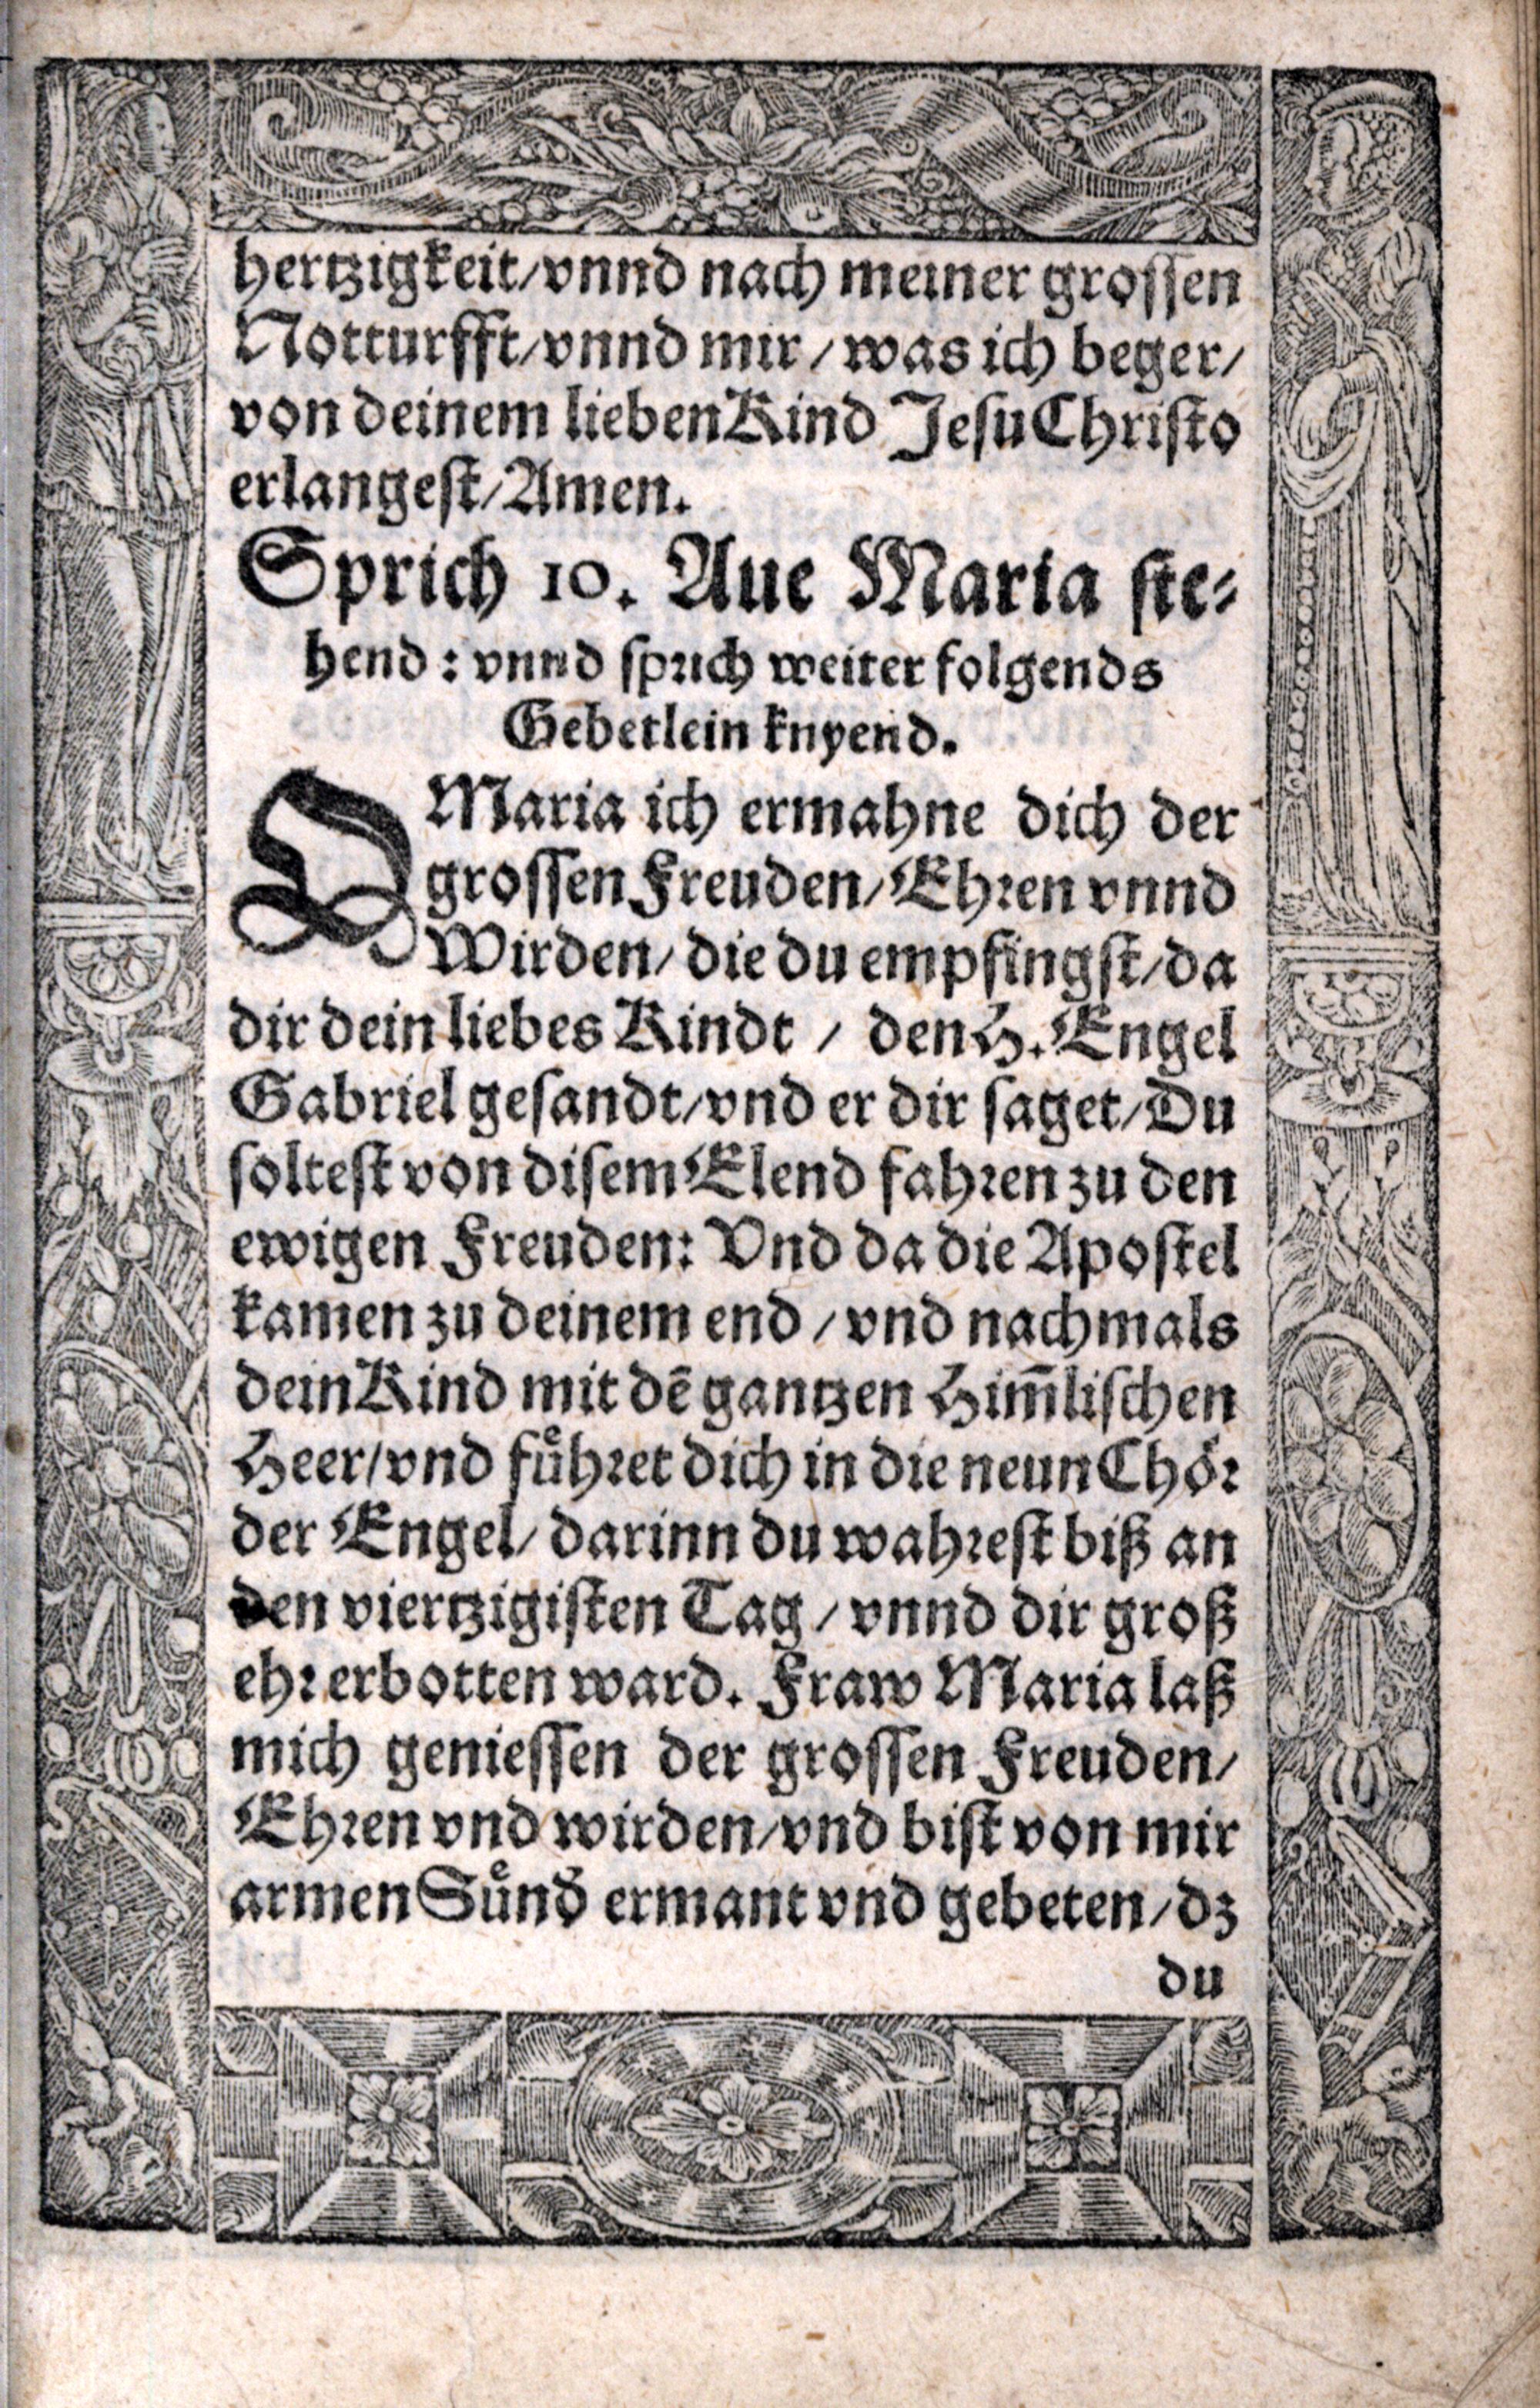 hertzigkeit/vnnd nach meiner grossen
Notturfft/vnnd mir/was ich beger/
von deinem lieben Kind Jesu Christo
erlangest/Amen.
Sprich 10. Aue Maria ste-
hend: vnnd sprich weiter folgends
Gebetlein knyend.
O Maria ich ermahne dich der
grossen Freuden/Ehren vnnd
Wirden/die du empfingst/da
dir dein liebes Kindt/den H. Engel
Gabriel gesandt/vnd er dir saget/Du
soltest von disem Elend fahren zu den
ewigen Freuden: Vnd da die Apostel
kamen zu deinem end/vnd nachmals
dein Kind mit dē gantzen Him̄lischen
Heer/vnd fuͤhret dich in die neun Choͤr
der Engel/darinn du wahrest biß an
den viertzigisten Tag/vnnd dir groß
ehr erbotten ward. Fraw Maria laß
mich geniessen der grossen Freuden/
Ehren vnd wirden/vnd bist von mir
armen Suͤnd̄ ermant vnd gebeten/dz
du